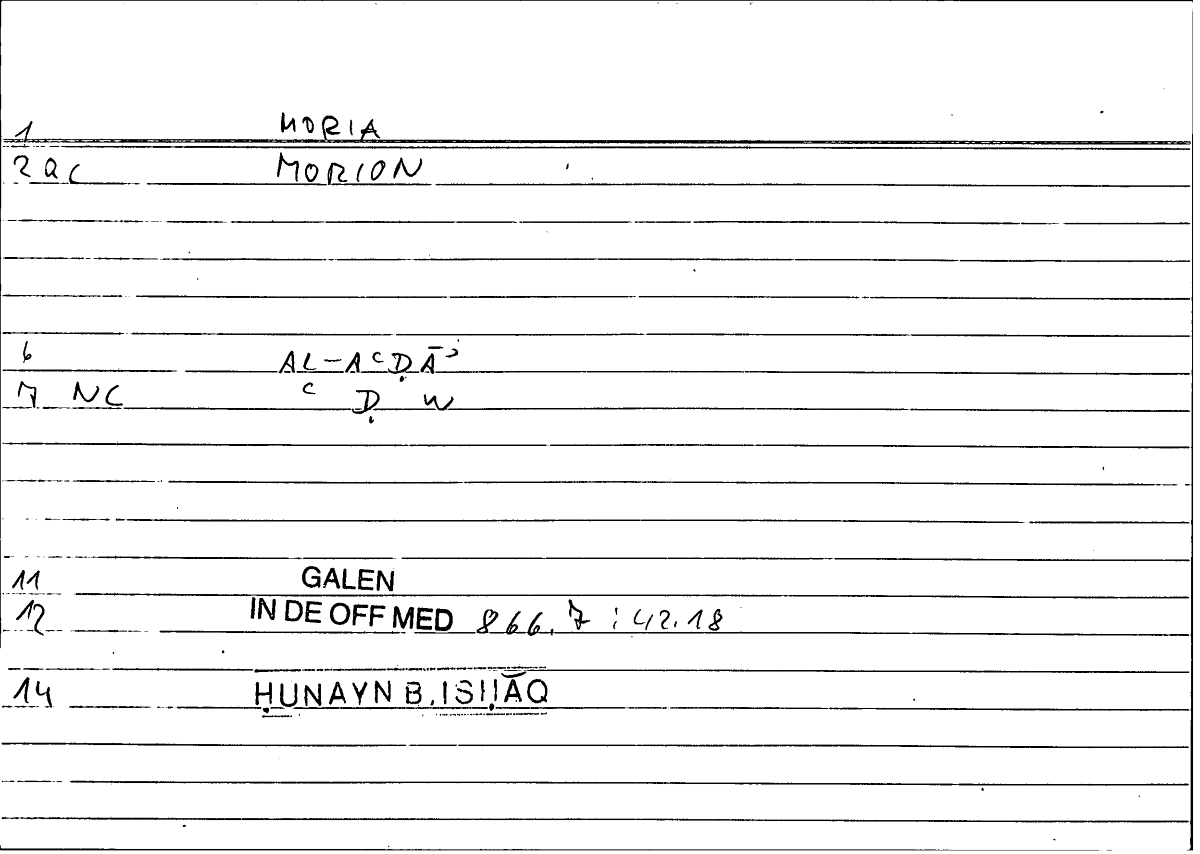 1 MORIA
2 QC MORION
6 AL-AᶜḌĀʾ
7 NC ᶜ Ḍ W
11 GALEN
12 IN DE OFF MED 866.7 : 42.18
14 ḤUNAYN B. ISḤĀQ